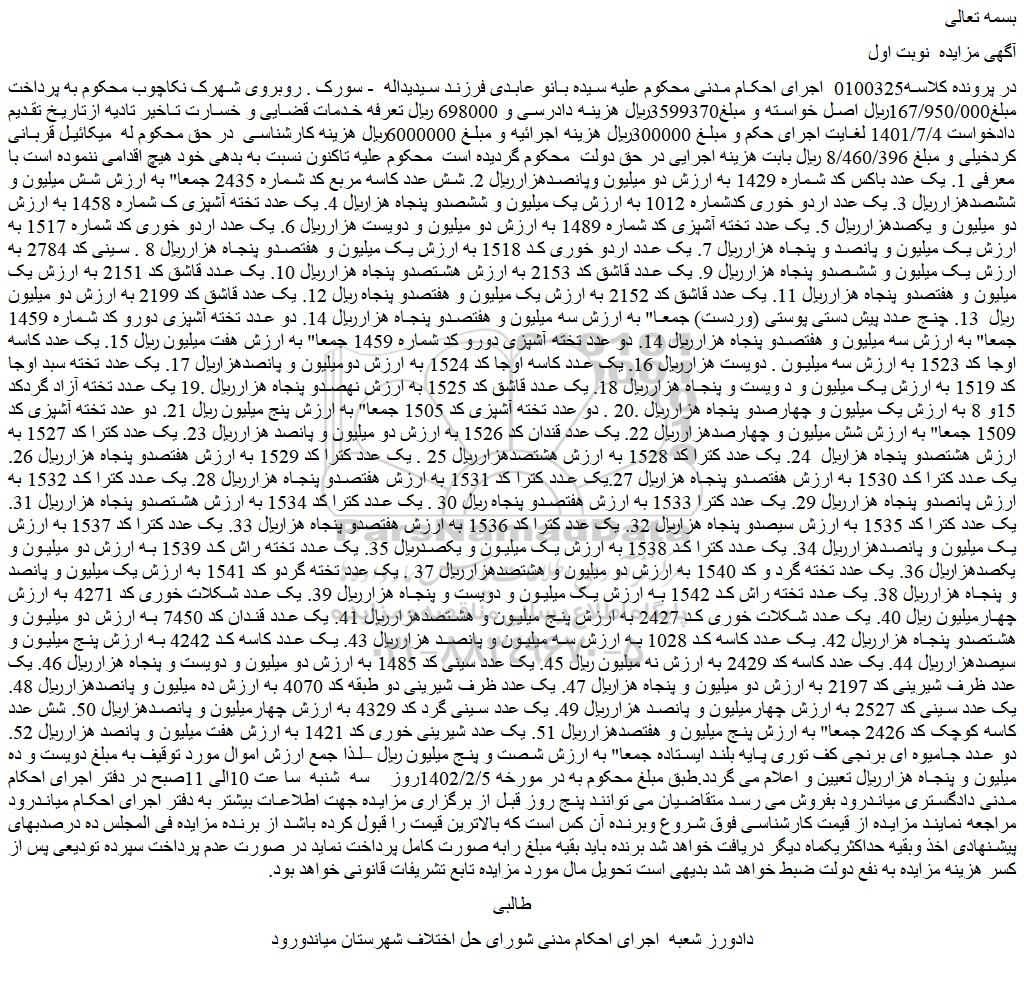 بسمه تعالی
آگهی مزایده  نوبت اول
در پرونده کلاسه0100325  اجرای احکام مدنی محکوم علیه سیده بانو عابدی فرزند سیدیداله  - سورک . روبروی شهرک نکاچوب محکوم به پرداخت
مبلغ167/950/000ریال اصل خواسته و مبلغ3599370ریال هزینه دادرسی و 698000 ریال تعرفه خدمات قضایی و خسارت تاخیر تادیه ازتاریخ تقدیم
دادخواست 1401/7/4 لغایت اجرای حکم و مبلغ 300000ریال هزینه اجرائیه و مبلغ 6000000ریال هزینه کارشناسی  در حق محکوم له  میکائیل قربانی
کردخیلی و مبلغ 8/460/396 ریال بابت هزینه اجرایی در حق دولت  محکوم گردیده است  محکوم علیه تاکنون نسبت به بدهی خود هیچ اقدامی ننموده است با
معرفی 1. یک عدد باکس کد شماره 1429 به ارزش دو میلیون وپانصدهزارریال 2. شش عدد کاسه مربع کد شماره 2435 جمعا" به ارزش شش میلیون و
ششصدهزارریال 3. یک عدد اردو خوری کدشماره 1012 به ارزش یک میلیون و ششصدو پنجاه هزاریال 4. یک عدد تخته آشپزی ک شماره 1458 به ارزش
دو میلیون و یکصدهزارریال 5. یک عدد تخته آشپزی کد شماره 1489 به ارزش دو میلیون و دویست هزارریال 6. یک عدد اردو خوری کد شماره 1517 به
ارزش یک میلیون و پانصد و پنجاه هزارریال 7. یک عدد اردو خوری کد 1518 به ارزش یک میلیون و هفتصدو پنجاه هزارریال 8 . سینی کد 2784 به
ارزش یک میلیون و ششصدو پنجاه هزارریال 9. یک عدد قاشق کد 2153 به ارزش هشتصدو پنجاه هزارریال 10. یک عدد قاشق کد 2151 به ارزش یک
میلیون و هفتصدو پنجاه هزارریال 11. یک عدد قاشق کد 2152 به ارزش یک میلیون و هفتصدو پنجاه ریال 12. یک عدد قاشق کد 2199 به ارزش دو میلیون
ریال  13. چنج عدد پیش دستی پوستی (وردست) جمعا" به ارزش سه میلیون و هفتصدو پنجاه هزارریال 14. دو عدد تخته آشپزی دورو کد شماره 1459
جمعا" به ارزش سه میلیون و هفتصدو پنجاه هزارریال 14. دو عدد تخته آشپزی دورو کد شماره 1459 جمعا" به ارزش هفت میلیون ریال 15. یک عدد کاسه
اوجا کد 1523 به ارزش سه میلیون . دویست هزارریال 16. یک عدد کاسه اوجا کد 1524 به ارزش دومیلیون و پانصدهزاریال 17. یک عدد تخته سبد اوجا
کد 1519 به ارزش یک میلیون و د ویست و پنجاه هزارریال 18. یک عدد قاشق کد 1525 به ارزش نهصدو پنجاه هزارریال .19 یک عدد تخته آزاد گردکد
15و 8 به ارزش یک میلیون و چهارصدو پنجاه هزارریال .20 . دو عدد تخته آشپزی کد 1505 جمعا" به ارزش پنج میلیون ریال 21. دو عدد تخته آشپزی کد
1509 جمعا" به ارزش شش میلیون و چهارصدهزارریال 22. یک عدد قندان کد 1526 به ارزش دو میلیون و پانصد هزارریال 23. یک عدد کترا کد 1527 به
ارزش هشتصدو پنجاه هزاریال  24. یک عدد کترا کد 1528 به ارزش هشتصدهزارریال 25 . یک عدد کترا کد 1529 به ارزش هفتصدو پنجاه هزارریال 26.
یک عدد کترا کد 1530 به ارزش هفتصدو پنجاه هزاریال 27.یک عدد کترا کد 1531 به ارزش هفتصدو پنجاه هزارریال 28. یک عدد کترا کد 1532 به
ارزش پانصدو پنجاه هزارریال 29. یک عدد کترا 1533 به ارزش هفتصدو پنجاه ریال 30 . یک عدد کترا کد 1534 به ارزش هشتصدو پنجاه هزارریال 31.
یک عدد کترا کد 1535 به ارزش سیصدو پنجاه هزاریال 32. یک عدد کترا کد 1536 به ارزش هفتصدو پنجاه هزاریال 33. یک عدد کترا کد 1537 به ارزش
یک میلیون و پانصدهزارریال 34. یک عدد کترا کد 1538 به ارزش یک میلیون و یکصدریال 35. یک عدد تخته راش کد 1539 به ارزش دو میلیون و
یکصدهزاریال 36. یک عدد تخته گرد و کد 1540 به ارزش دو میلیون و هشتصدهزارریال 37 . یک عدد تخته گردو کد 1541 به ارزش یک میلیون و پانصد
و پنجاه هزارریال 38. یک عدد تخته راش کد 1542 به ارزش یک میلیون و دویست و پنجاه هزارریال 39. یک عدد شکلات خوری کد 4271 به ارزش
چهارمیلیون ریال 40. یک عدد شکلات خوری کد 2427 به ارزش پنج میلیون و هشتصدهزارریال 41. یک عدد قندان کد 7450 به ارزش دو میلیون و
هشتصدو پنجاه هزارریال 42. یک عدد کاسه کد 1028 به ارزش سه میلیون و پانصد هزارریال 43. یک عدد کاسه کد 4242 به ارزش پنج میلیون و
سیصدهزارریال 44. یک عدد کاسه کد 2429 به ارزش نه میلیون ریال 45. یک عدد سینی کد 1485 به ارزش دو میلیون و دویست و پنجاه هزارریال 46. یک
عدد ظرف شیرینی کد 2197 به ارزش دو میلیون و پنجاه هزاریال 47. یک عدد ظرف شیرینی دو طبقه کد 4070 به ارزش ده میلیون و پانصدهزارریال 48.
یک عدد سینی کد 2527 به ارزش چهارمیلیون و پانصد هزارریال 49. یک عدد سینی گرد کد 4329 به ارزش چهارمیلیون و پانصدهزاریال 50. شش عدد
کاسه کوچک کد 2426 جمعا" به ارزش پنج میلیون و هفتصدهزارریال 51. یک عدد شیرینی خوری کد 1421 به ارزش هفت میلیون و پانصد هزارریال 52.
دو عدد جامیوه ای برنجی کف توری پایه بلند ایستاده جمعا" به ارزش شصت و پنج میلیون ریال –لذا جمع ارزش اموال مورد توقیف به مبلغ دویست و ده
میلیون و پنجاه هزارریال تعیین و اعلام می گردد.طبق مبلغ محکوم به در مورخه 1402/2/5روز    سه  شنبه  سا عت 10الی 11صبح در دفتر اجرای احکام
مدنی دادگستری میاندرود بفروش می رسد متقاضیان می توانند پنج روز قبل از برگزاری مزایده جهت اطلاعات بیشتر به دفتر اجرای احکام میاندرود
مراجعه نمایند مزایده از قیمت کارشناسی فوق شروع وبرنده آن کس است که بالاترین قیمت را قبول کرده باشد از برنده مزایده فی المجلس ده درصدبهای
پیشنهادی اخذ وبقیه حداکثریکماه دیگر دریافت خواهد شد برنده باید بقیه مبلغ رابه صورت کامل پرداخت نماید در صورت عدم پرداخت سپرده تودیعی پس از
کسر هزینه مزایده به نفع دولت ضبط خواهد شد بدیهی است تحویل مال مورد مزایده تابع تشریفات قانونی خواهد بود.
طالبی
دادورز شعبه  اجرای احکام مدنی شورای حل اختلاف شهرستان میاندورود
ParsNamadData
پایگاه اطلاع رسانی مناقصه و مزایده
۰۲۱-۸۸۳۴۹۶۷۰-۵